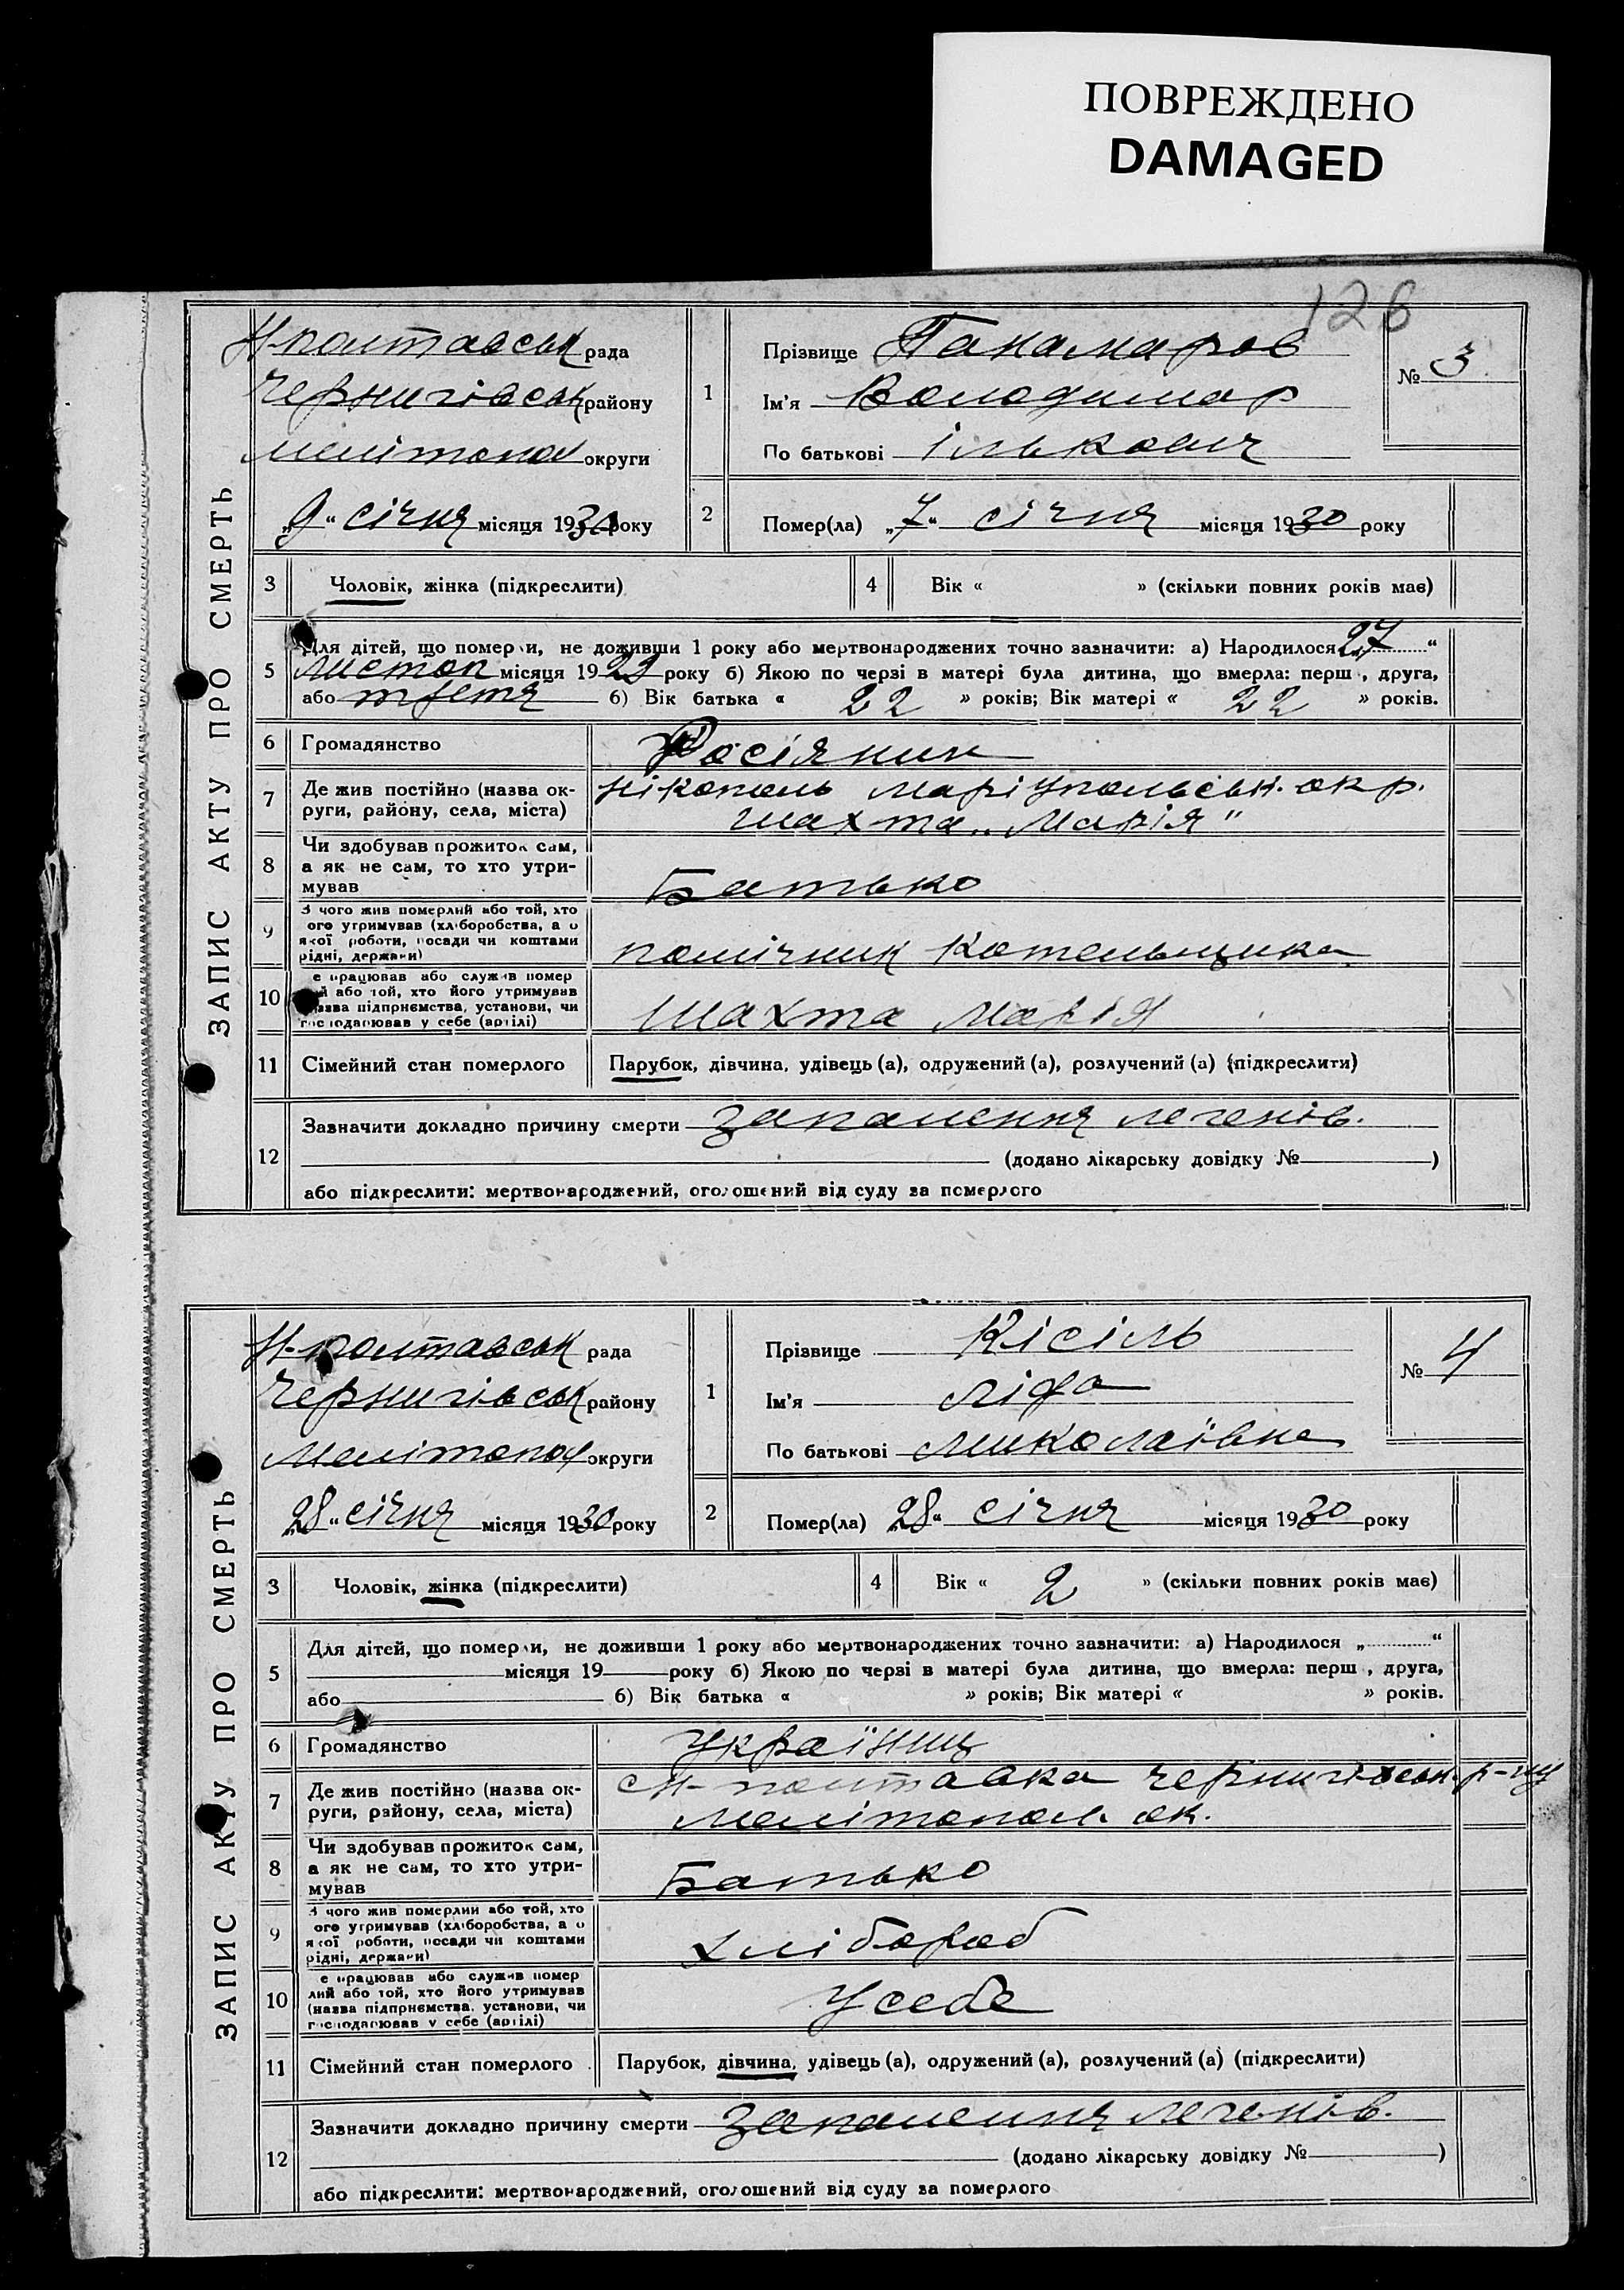 ПОВРЕЖДЕНО
DAMAGED
128
ЗАПИС АКТУ ПРО СМЕРТЬ
Н-полтавськ рада
Чернигівськ району
Мелітопол округи
„9“ січня місяця 1930 року
1
Прізвище Панамаров
Ім'я Володимар
По батькові Ількович
№ 3
2
Помер(ла) „7“ січня місяця 1930 року
3 Чоловік, жінка (підкреслити)
4 Вік « » (скільки повних років має)
5
Для дітей, що померли, не доживши 1 року або мертвонароджених точно зазначити: а) Народилося „27“
листоп місяця 1929 року б) Якою по черзі в матері була дитина, що вмерла: перш , друга,
або третя б) Вік батька « 22 » років; Вік матері « 22 » років.
6 Громадянство Росіянин
7 Де жив постійно (назва ок-
руги, району, села, міста)
Нікополь Маріупольськ. окр.
шахта „Марія"
8 Чи здобував прожиток сам,
а як не сам, то хто утри-
мував
Батько
9 З чого жив померлий або той, хто
ого утримував (хліборобства, а о
якої роботи, посади чи коштами
рідні, держави)
помічник Котельщика
10 е працював або служив помер
й або той, хто його утримував
назва підприємства, установи, чи
господарював у себе (артілі)
Шахта Марія
11 Сімейний стан померлого Парубок, дівчина, удівець (а), одружений (а), розлучений (а) (підкреслити)
12
Зазначити докладно причину смерти запалення легенів.
(додано лікарську довідку № )
або підкреслити: мертвонароджений, оголошений від суду за померлого
ЗАПИС АКТУ ПРО СМЕРТЬ
Н-полтавськ рада
Чернигівськ району
Мелітопол округи
„28“ січня місяця 1930 року
1
Прізвище Кісіль
Ім'я Ліда
По батькові Миколаївна
№ 4
2
Помер(ла) „28“ січня місяця 1930 року
3 Чоловік, жінка (підкреслити)
4 Вік « 2 » (скільки повних років має)
5
Для дітей, що померли, не доживши 1 року або мертвонароджених точно зазначити: а) Народилося „ “
місяця 19 року б) Якою по черзі в матері була дитина, що вмерла: перш , друга,
або б) Вік батька « » років; Вік матері « » років.
6 Громадянство Українц
7 Де жив постійно (назва ок-
руги, району, села, міста)
Н-полтавка Чернигівськ. р-ну
Мелітопол. ок.
8 Чи здобував прожиток сам,
а як не сам, то хто утри-
мував
Батько
9 З чого жив померлий або той, хто
ого утримував (хліборобства, а о
якої роботи, посади чи коштами
рідні, держави)
хлібороб
10 е працював або служив помер
лий або той, хто його утримував
(назва підприємства, установи, чи
господарював у себе (артілі)
У себе
11 Сімейний стан померлого Парубок, дівчина, удівець (а), одружений (а), розлучений (а) (підкреслити)
12
Зазначити докладно причину смерти запалення легенів.
(додано лікарську довідку № )
або підкреслити: мертвонароджений, оголошений від суду за померлого